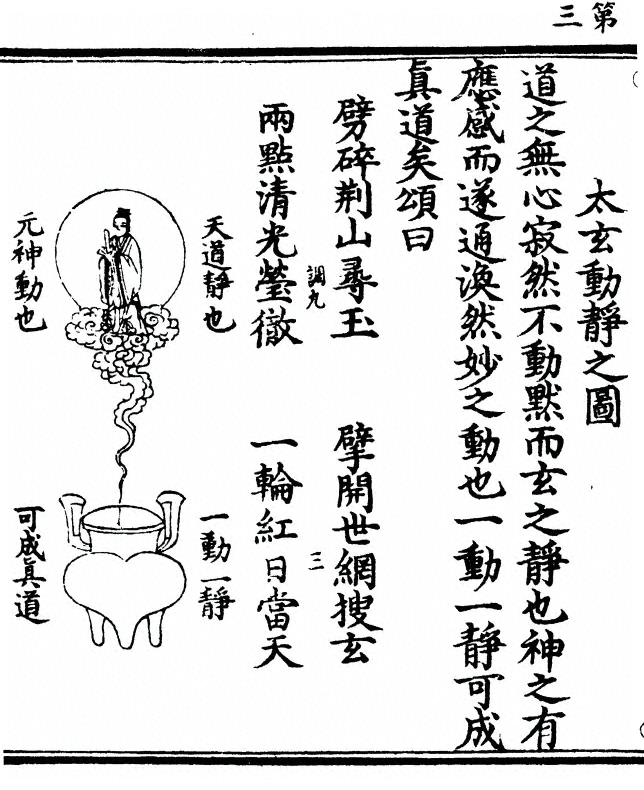 第三
太玄動靜之圖
道之無心寂然不動默而玄之靜也神之有
應感而遂通渙然妙之動也一動一靜可成
眞道矣頌曰
劈碎荆山尋玉 擘開世網搜玄
調九 三
兩點清光瑩徹 一輪紅日當天
天道靜也 一動一靜
元神動也 可成眞道